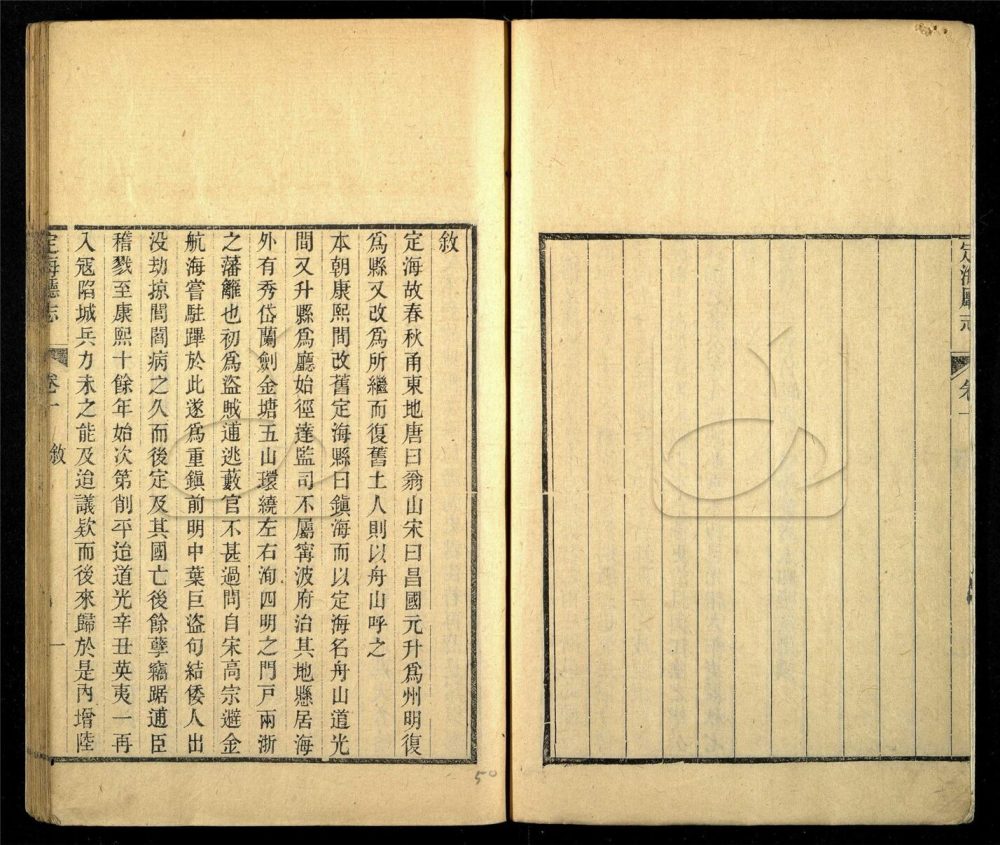 定海廳志
卷一
敘
定海故春秋甬東地唐曰翁山宋曰昌國元升爲州明復
爲縣又改爲所繼而復舊土人則以舟山呼之
本朝康熙間改舊定海縣曰鎮海而以定海名舟山道光
間又升縣爲廳始徑達監司不屬甯波府治其地懸居海
外有秀岱蘭劍金塘五山環繞左右洵四明之門戸兩浙
之藩籬也初爲盜賊逋逃藪官不甚過問自宋高宗避金
航海嘗駐蹕於此遂爲重鎮前明中葉巨盜句結倭人出
没劫掠閭閻病之久而後定及其國亡後餘孽竊踞逋臣
稽戮至康熙十餘年始次第削平迨道光辛丑英夷一再
入寇陷城兵力未之能及迨議欵而後來歸於是內增陸
定海廳志
卷一
敘
一
50